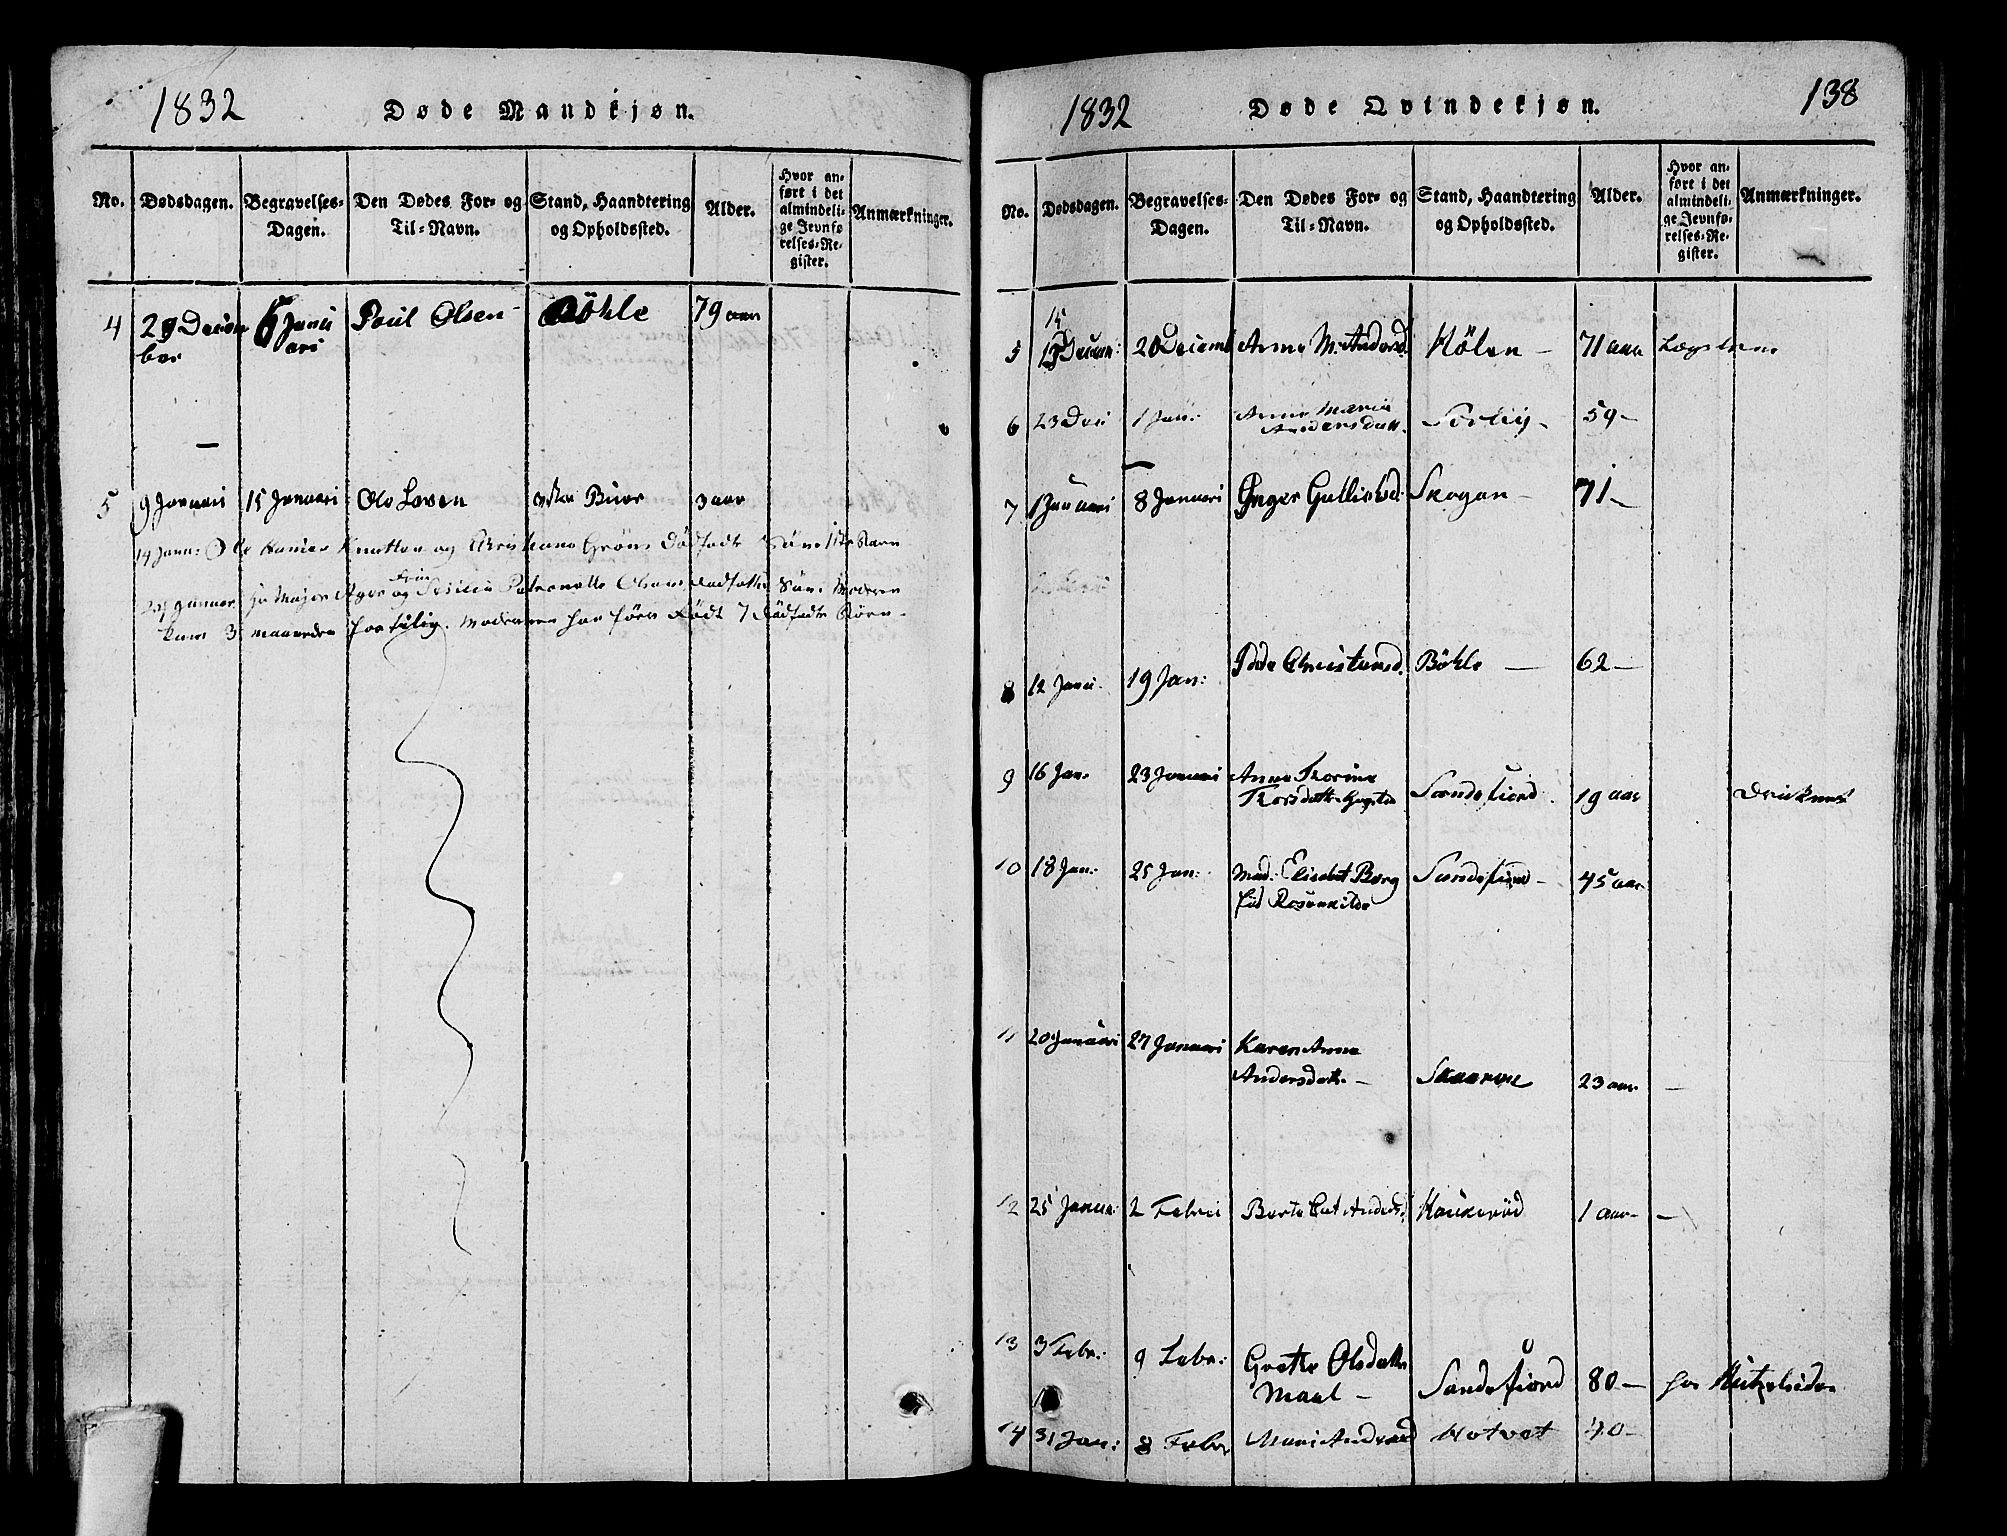 1832
Døde Mandkjøn.
No.
Dødsdagen.
Begravelses-
Dagen.
Den Dødes For- og
Til-Navn.
Stand, Haandtering
og Opholdssted.
Alder.
Hvor an-
ført i det
almindeli-
ge Jevnfø
relses-Re-
gister.
Anmærkninger.
4 29 Decem 6 Janu Poul Olsen Böhle 79 aar
ber ari
5 9 Januari 15 Januari Ole Larsen Buer 3 aar
14 Janu: Ole Hansen Knatten og Christiane Dödfödt Sön
og Petronelle Olsens Dödfödte Sön. Moderen
kun 3 maaneder for tilig. Moderen har förn Födt 7 Dödfödte Börn
1832
Døde Qvindekjøn.
138
No.
Dødsdagen.
Begravelses-
Dagen.
Den Dødes For- og
Til-Navn.
Stand, Haandtering
og Opholdssted.
Alder.
Hvor an-
ført i det
almindeli-
ge Jevnfø-
relses-Re-
gister.
Anmærkninger.
15
5 Decem: 20 Decemb Anne M. Andersd. Kölen – 71 aar Lægdslem
6 23 Dec 1 Jan: Anne Maria
Andersdatt. 59 –
7 1 Januari 8 Januari Inger Gulliksd. Skogan – 71 –
8 12 Janu. 19 Jan: Christensd. Böhle – 62 –
9 16 Jan. 23 Januari Anne Thorine
Thorsdatt. Sandefiord. 19 aar Druknet
10 18 Jan: 25 Jan: Mad: Elisabet Berg Sandefiord – 45 aar
föd Rosenkilde
11 20 Januari 27 Januari Karen Anne
Andersdatt. – 23 aar –
12 25 Janua: 2 Februa Berte Cat. Andersd. Haukeröd 1 aar –
13 3 Febr: 9 Febr: Grethe Olsdatter
Maal – Sandefiord 80 – hos
14 31 Jan: 8 Febr Mari Andersd Hotvet 40 –